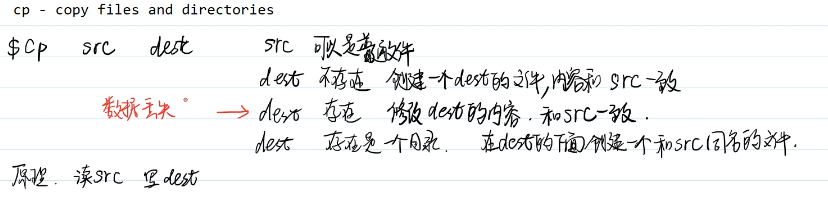 cp - copy files and directories
$cp src dest src 可以是普通文件
dest 不存在 创建一个dest的文件,内容和 src一致
数据丢失。 → dest 存在 修改dest的内容.和src一致.
dest 存在是一个目录. 在dest的下面创建一个和src同名的文件.
原理. 读src 写dest